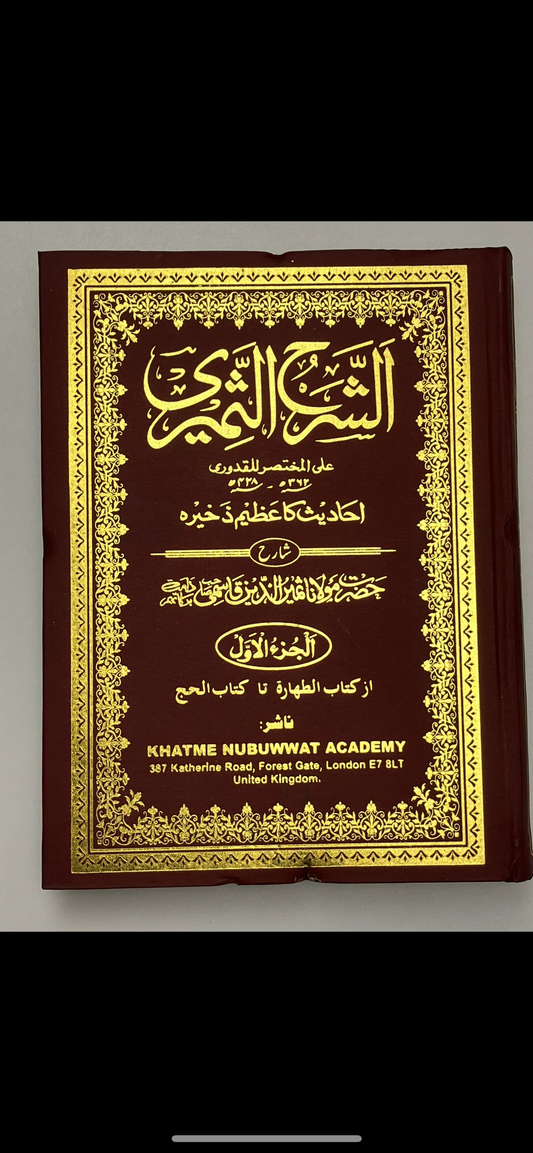 الشَّرْحُ الثَّمِيرِى
على المختصر للقدورى
۳۶۲ھ - ۴۲۸ھ
احادیث کا عَظیم ذَخیرہ
شارح
حضرت مولانا ثمیر الدین قاسمی صاحب
اَلْجُزءُ الْاَوَّلُ
از کتاب الطهارة تا کتاب الحج
ناشر:
KHATME NUBUWWAT ACADEMY
387 Katherine Road, Forest Gate, London E7 8LT
United Kingdom.